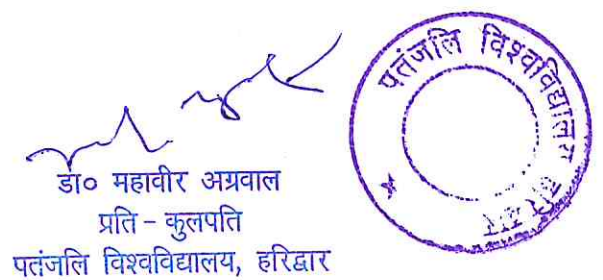 डा० महावीर अग्रवाल
प्रति - कुलपति
पतंजलि विश्वविद्यालय, हरिद्वार
पतंजलि विश्वविद्यालय हरिद्वार